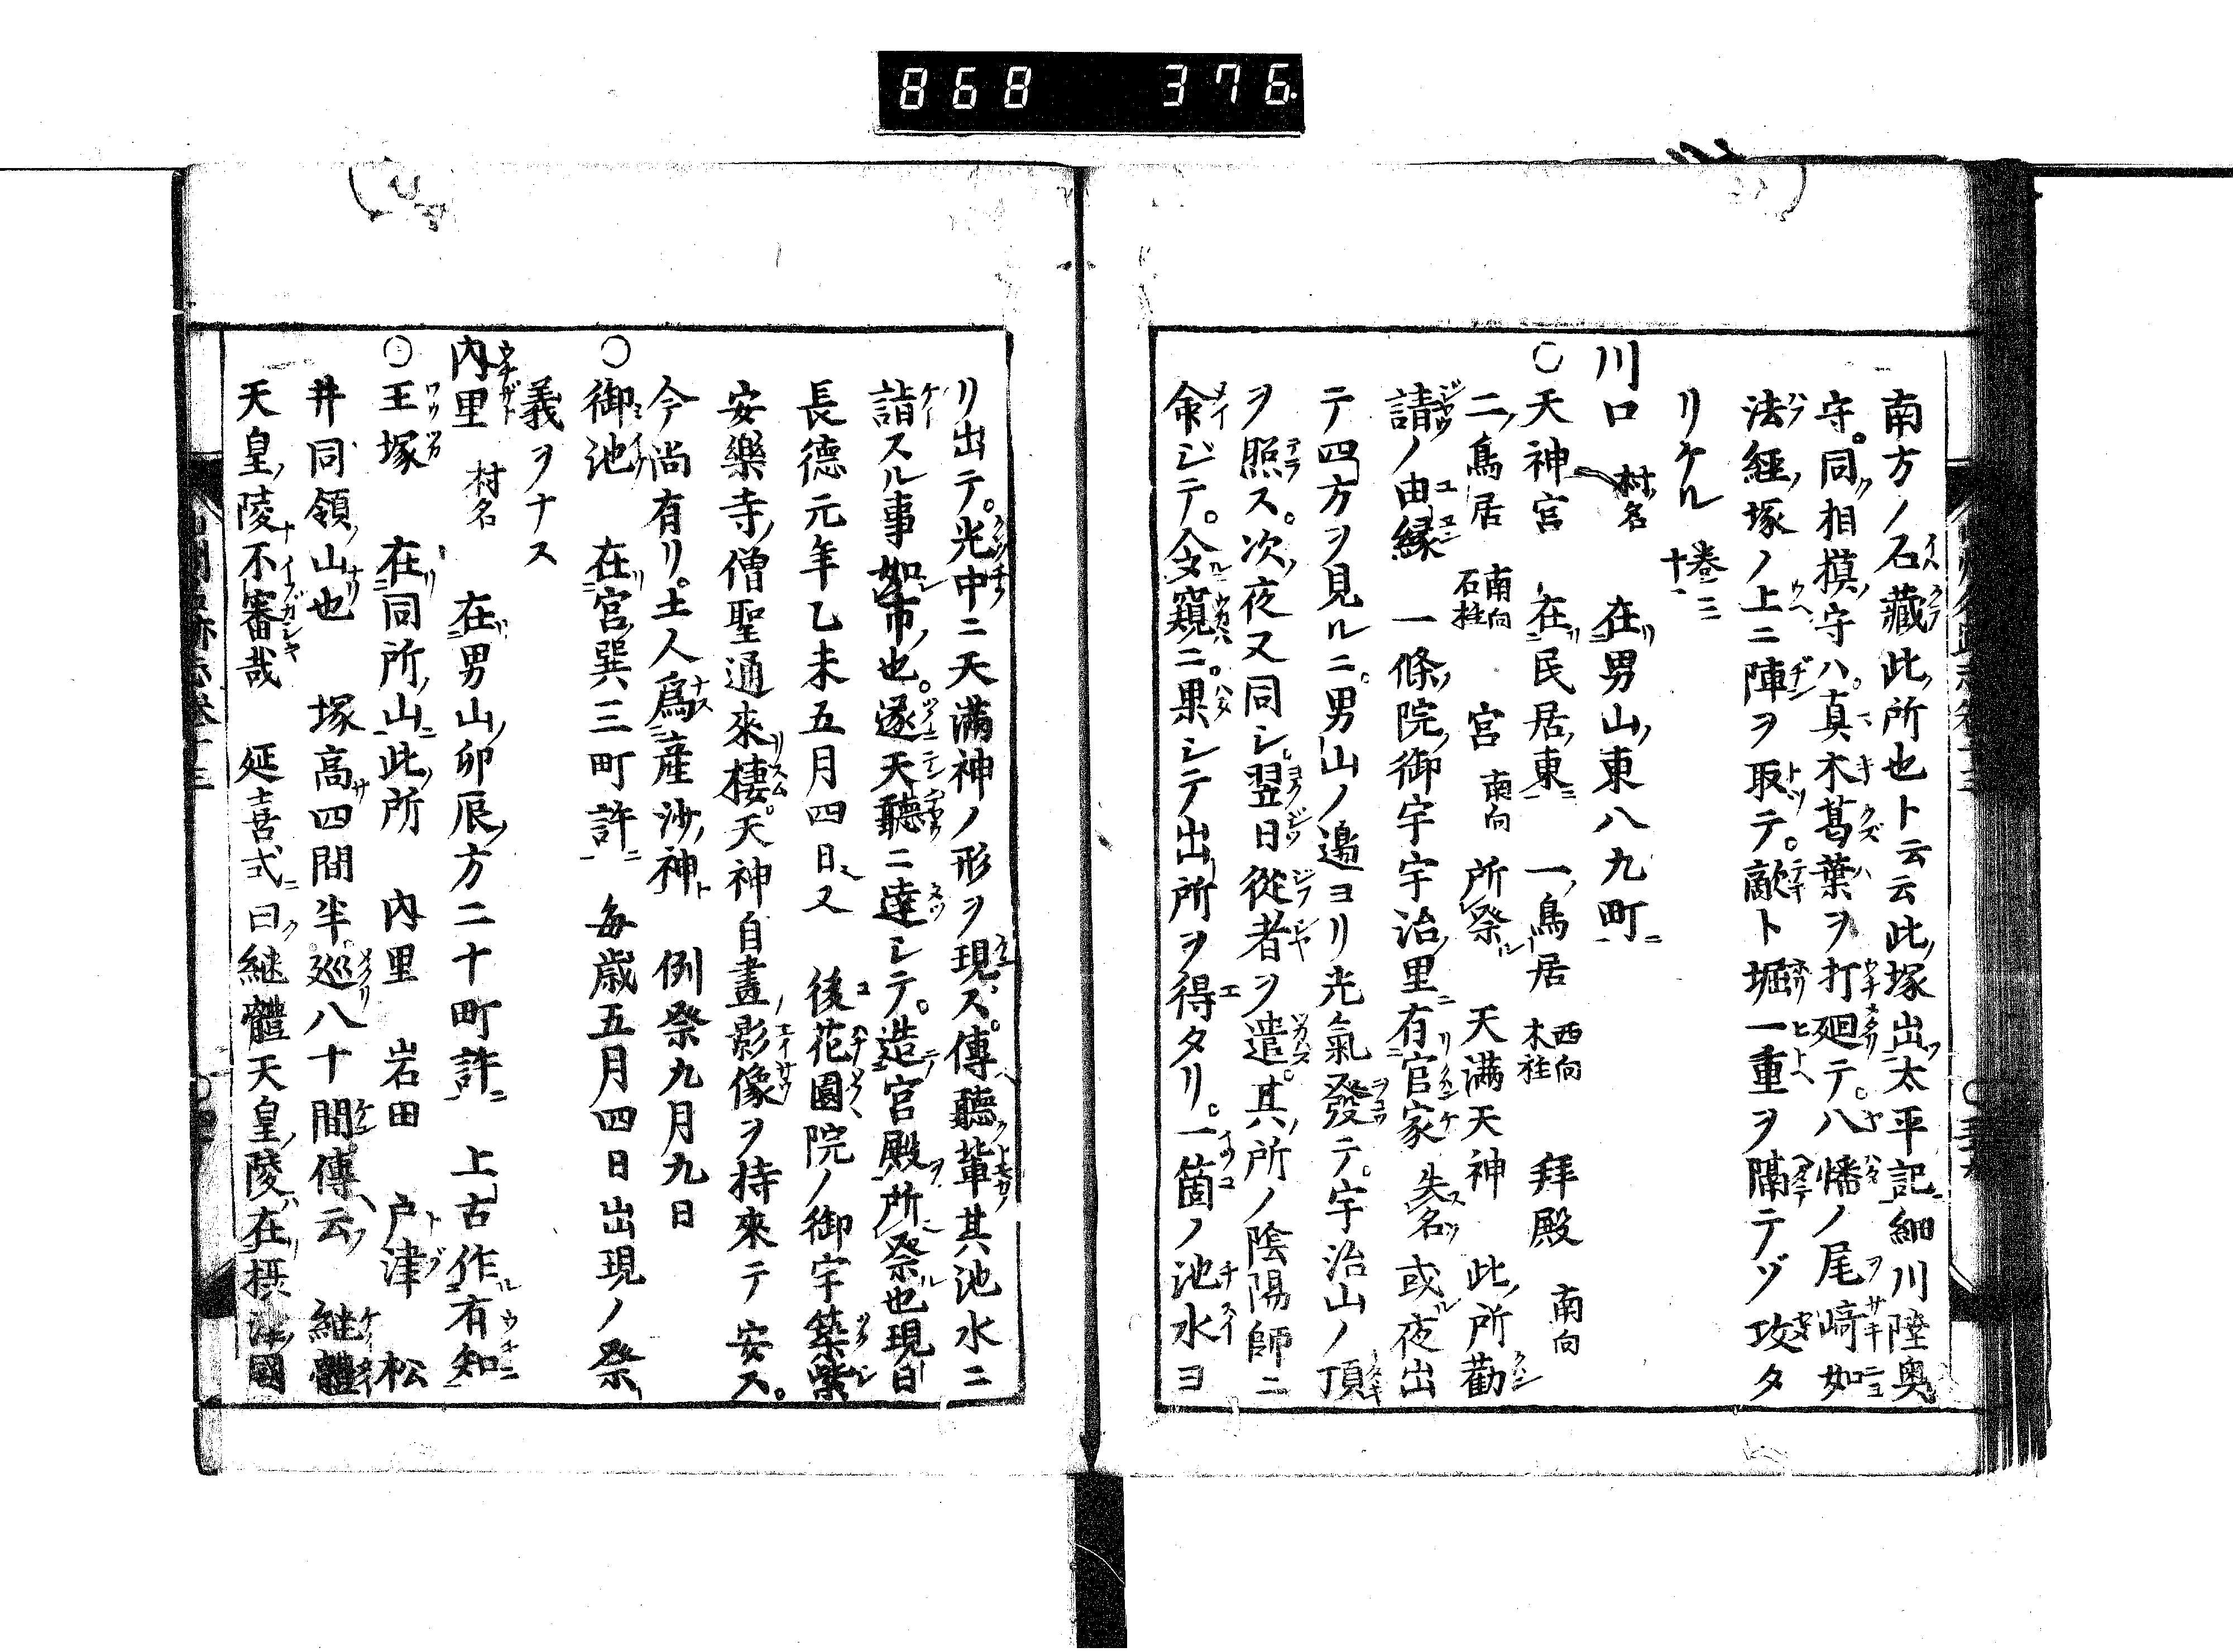 868 376.
南方ノ石藏此所也ト云云此塚出太平記細川陸奥
守。同相摸守ハ。真木葛葉ヲ打廻テ。八幡ノ尾﨑如
法經塚ノ上ニ陣ヲ取テ。敵ト堀一重ヲ隔テヅ攻タ
リケル 巻三十一
川口 村名 在男山東八九町
○天神宮 在民居東 一鳥居 西向木柱 拜殿 南向
二鳥居 南向石柱 宮 南向 所祭 天満天神 此所勸
請ノ由縁 一條院御宇宇治里有官家 失名 或夜出
テ四方ヲ見ルニ。男山ノ邉ヨリ光氣發テ。宇治山ノ頂
ヲ照ス。次夜又同シ翌日從者ヲ遣。其所ノ陰陽師ニ
命ジテ。令窺ニ。果シテ出所ヲ得タリ。一箇ノ池水ヨ
リ出テ。光中ニ天満神ノ形ヲ現ス。傳聽輩其池水ニ
詣スル事如市也。遂天聽ニ達シテ。造宮殿所祭也現日
長德元年乙未五月四日又 後花園院ノ御宇築紫
安樂寺僧聖通來棲。天神自畫影像ヲ持來テ安ス。
今尚有リ。土人為産沙神 例祭九月九日
○御池 在宮巽三町許 毎歳五月四日出現ノ祭
義ヲナス
内里 村名 在男山卯辰方二十町許 上古作有知
○王塚 在同所山此所 内里 岩田 戸津 松
井同領山也 塚高四間半巡八十間傳云 継體
天皇陵不審哉 延喜式曰継體天皇陵在摂津國